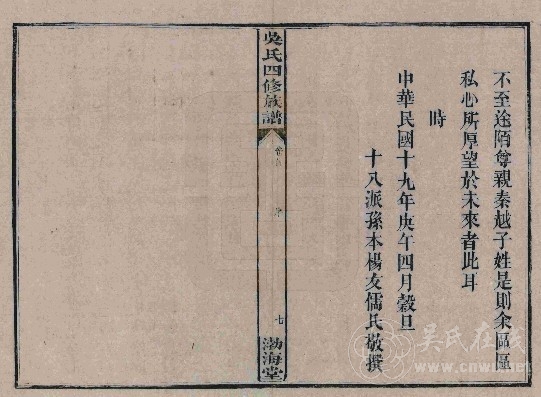 不至途陌尊親秦越子姓是則余區區
私心所厚望於未來者此耳
時
中華民國十九年庚午四月穀旦
十八派孫本楊友儒氏敬撰
吳氏四修族譜
七
渤海堂
吴氏在线
www.cnwu.net